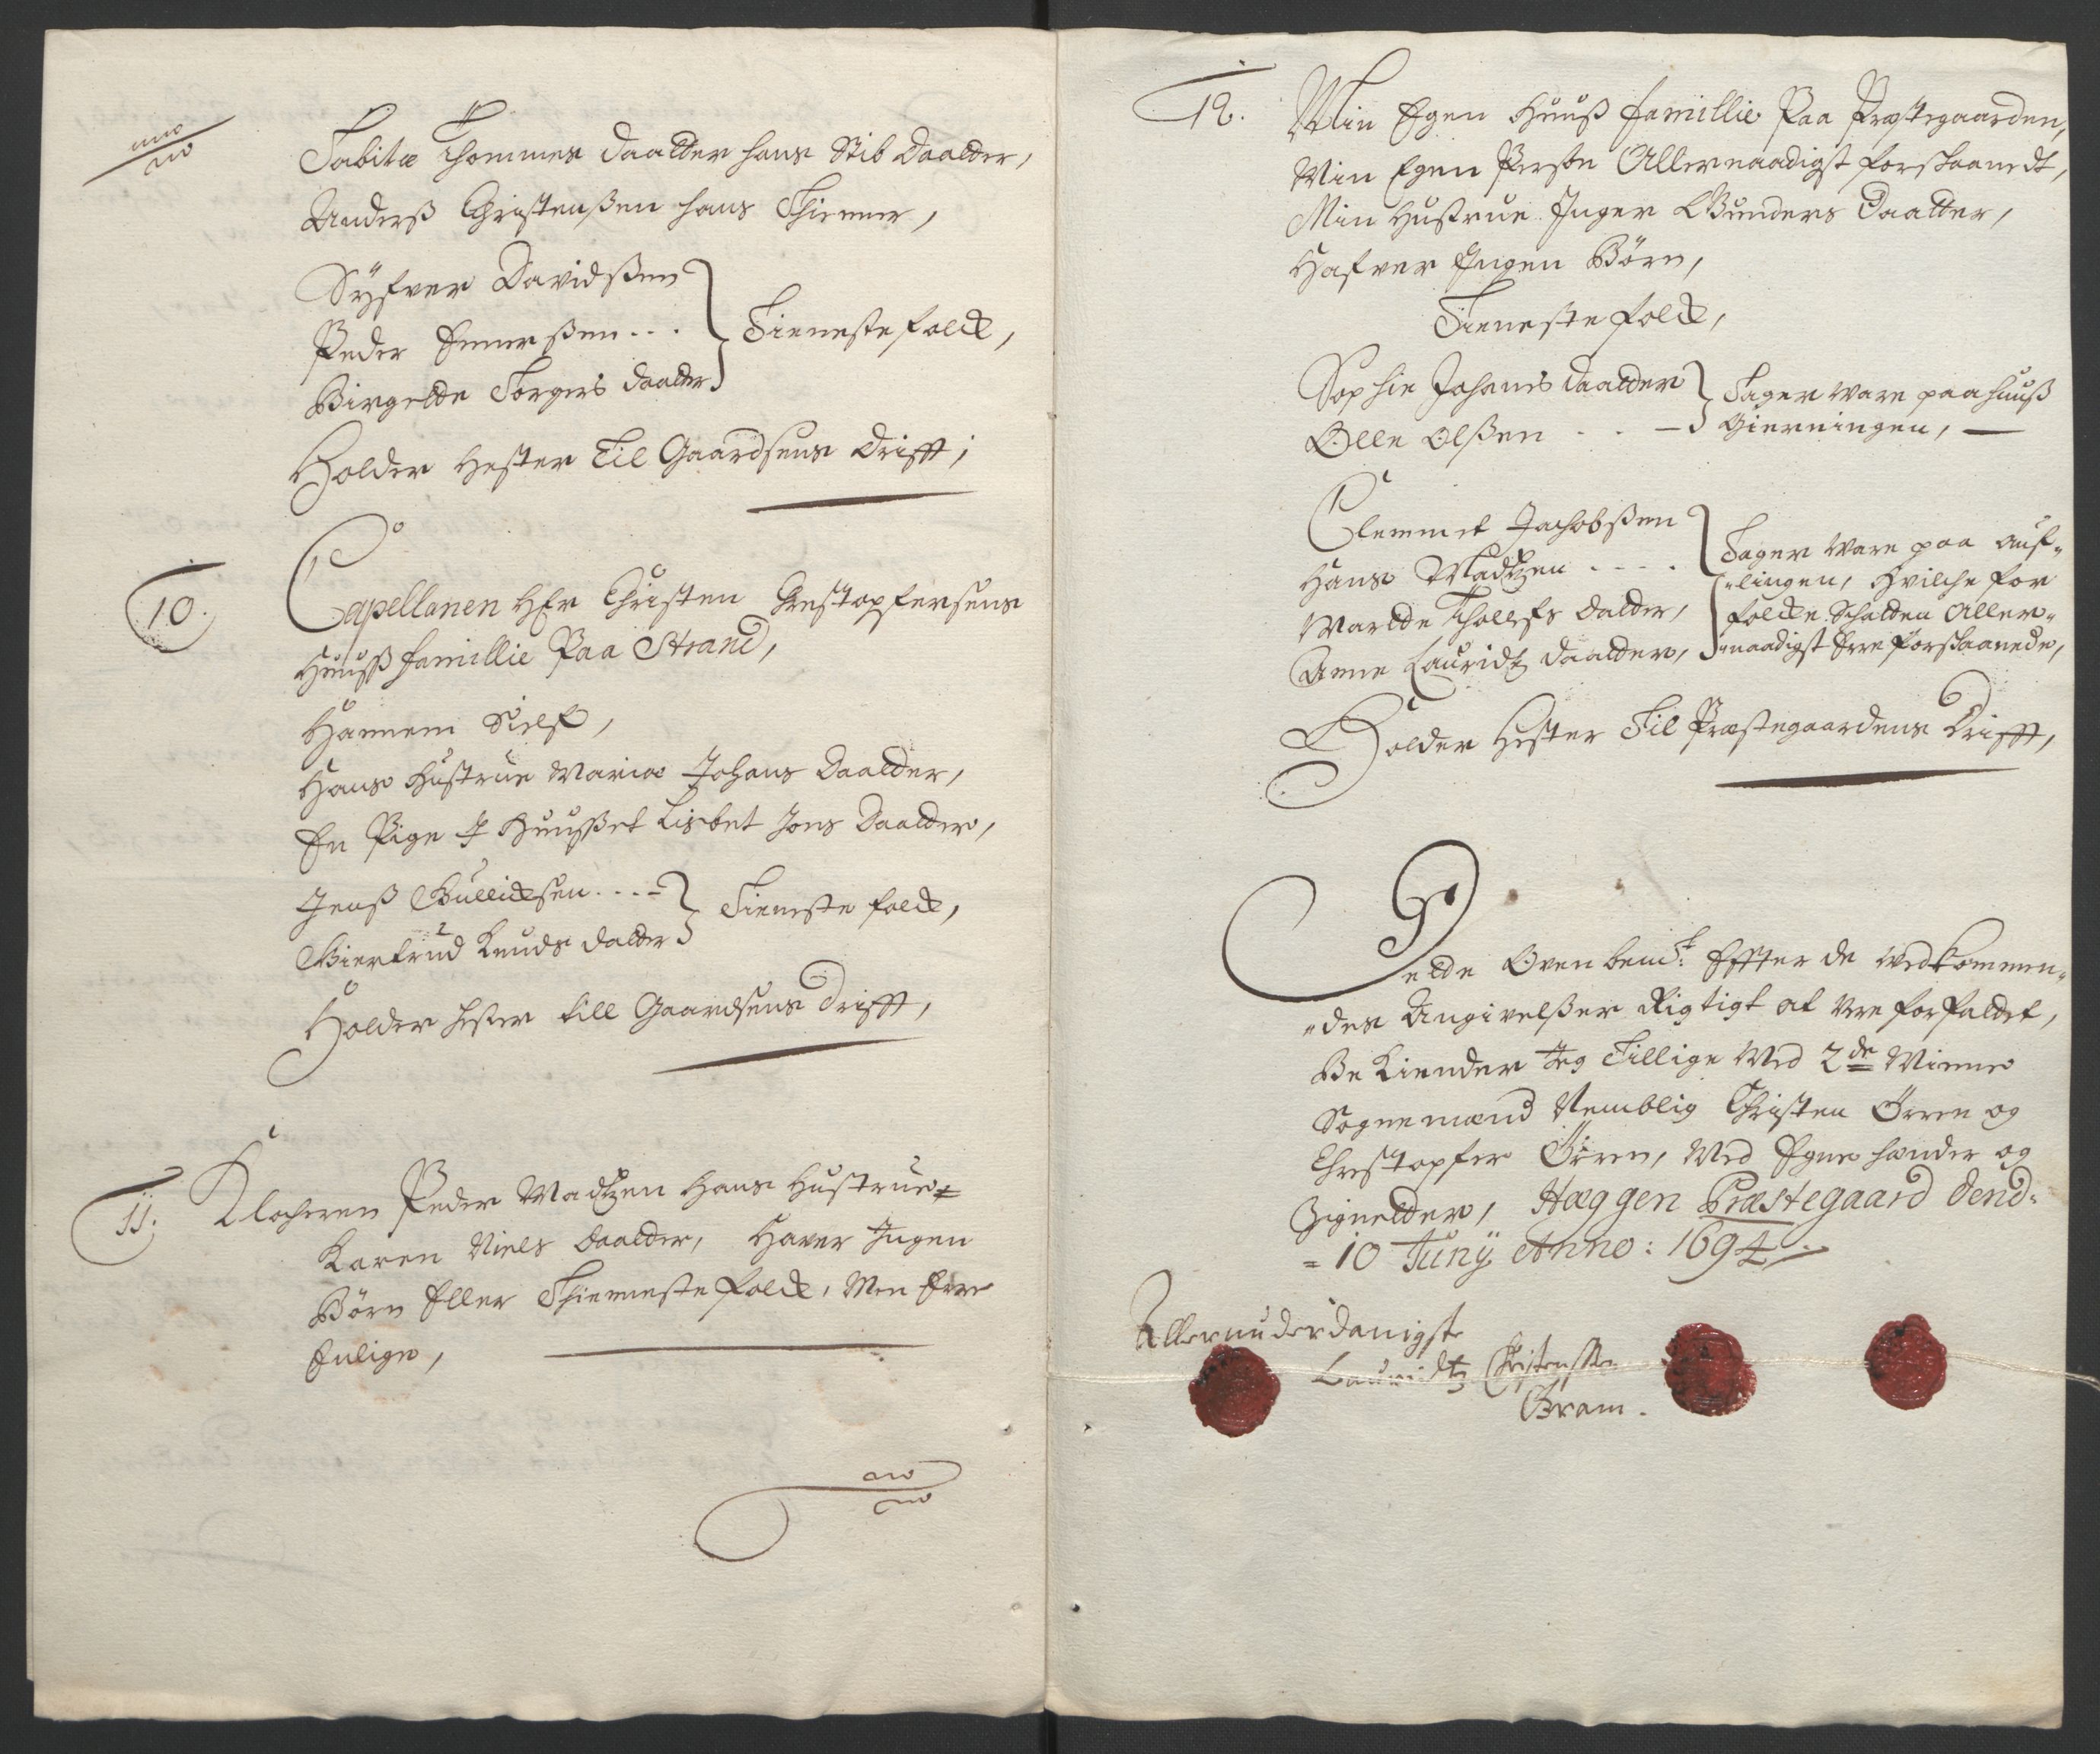 Tabita Thommes daatter hans Stib Daatter,
Anderß Christenßen hans Thienner,
Syfver Davidßen
Peder Ennerßen - - .
Birgette Torgers daatter
Tieneste folck,
Holder Hester Til Gaardsens Drifft;
10.
Capellanen HEr Christen Chrestopfersens
Huuß famillie Paa Strand,
Hannem Sielf,
Hans Hustrue Maria Johans Daatter,
En Pige I Huusset Lisbet Jons Daatter,
Jenß Gullicksen - - - -
Giertrud Knuds datter
Tieneste folck,
Holder hester till Gaardsens Drifft,
11.
Klocheren Peder Madtzen Hans Hustrue
Karen Niels Daatter, Haver Ingen
Børn Eller Thienneste folck, Men Erre
Enlige,
12.
Min Egen Huuß famillie Paa Præstegaarden,
Min Egen Persohn Allernaadigst forskaanedt,
Min Hustrue Inger Gunders Daatter,
Hafver Ingen Børn,
Tieneste folck,
Sophie Johanes daatter
Olle Olßen - - -
Tager ware paa huuß
Gierningen,
Clemmet Jachobßen
Hans Madtzen - - - .
Marte Thollefs datter,
Anne Lauridtz daatter,
Tager ware paa auf-
lingen, Hvilche for
folcke Schatten Aller-
naadigst Erre forskaanede,
Holder Hester Til Præstegaardens Drifft,
Dette Ovenbem:te Effter de vedkommen-
des Angivelßer Rigtigt at vere forfattet,
Bekiender Jeg Tillige Med 2de Mienne
Sognemænd Nemblig Christen Örren og
Chrestopfer Örren, Med Egne hænder og
Zignetter, Hæggen Præstegaard dend
= 10 Junij Anno: 1694
Allerunderdanigste
Lauridtz Christensen
Gram.